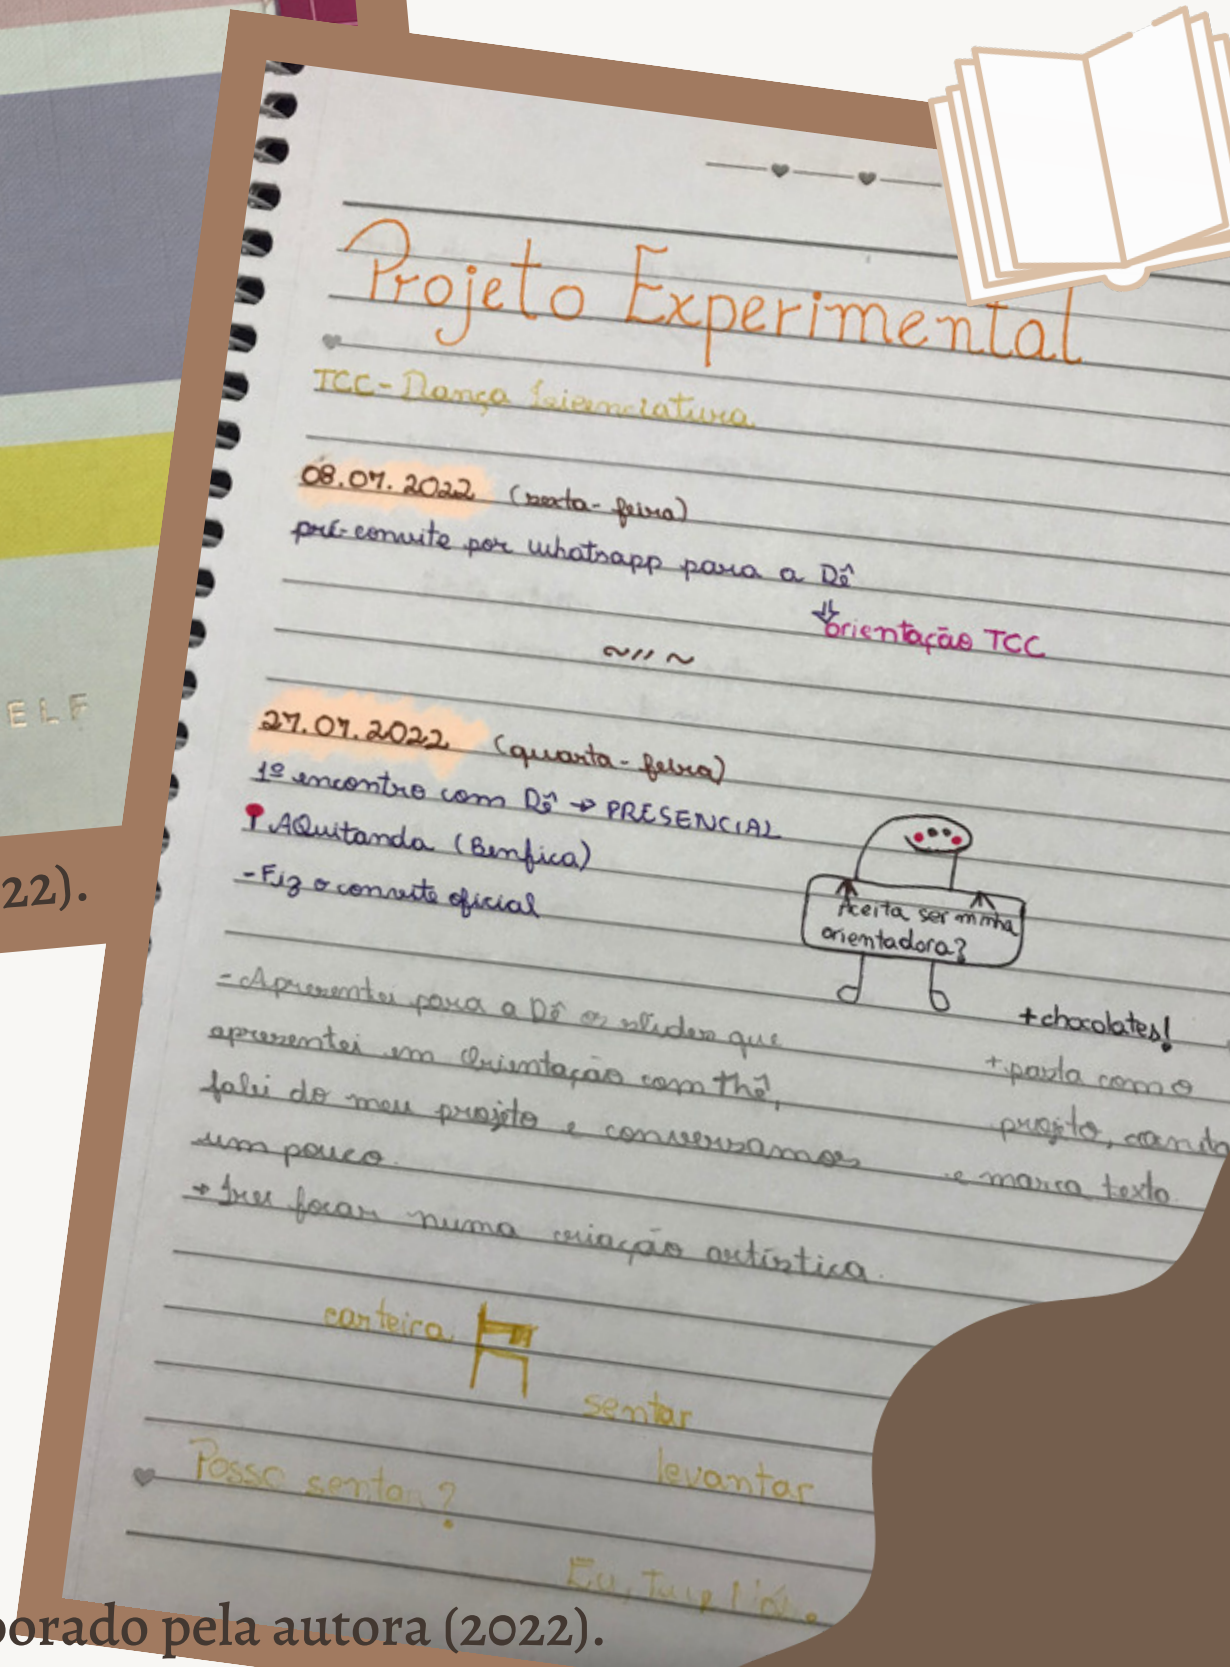 ELF
22).
Projeto Experimental
TCC - Dança Licenciatura
08.07.2022 (sexta-feira)
pré-convite por whatsapp para a Dê
orientação TCC
27.07.2022 (quarta-feira)
1º encontro com Dê → PRESENCIAL
AQuitanda (Benfica)
- Fiz o convite oficial
Aceita ser minha
orientadora?
+chocolates!
+ pasta com o
projeto,
e marca texto.
- Apresentei para a Dê os slides que
apresentei em Orientação com Thê,
falei do meu projeto e conversamos
um pouco.
→ Irei focar numa criação artística.
carteira
sentar
levantar
Posso sentar?
Eu, Tu e Nós
borado pela autora (2022).